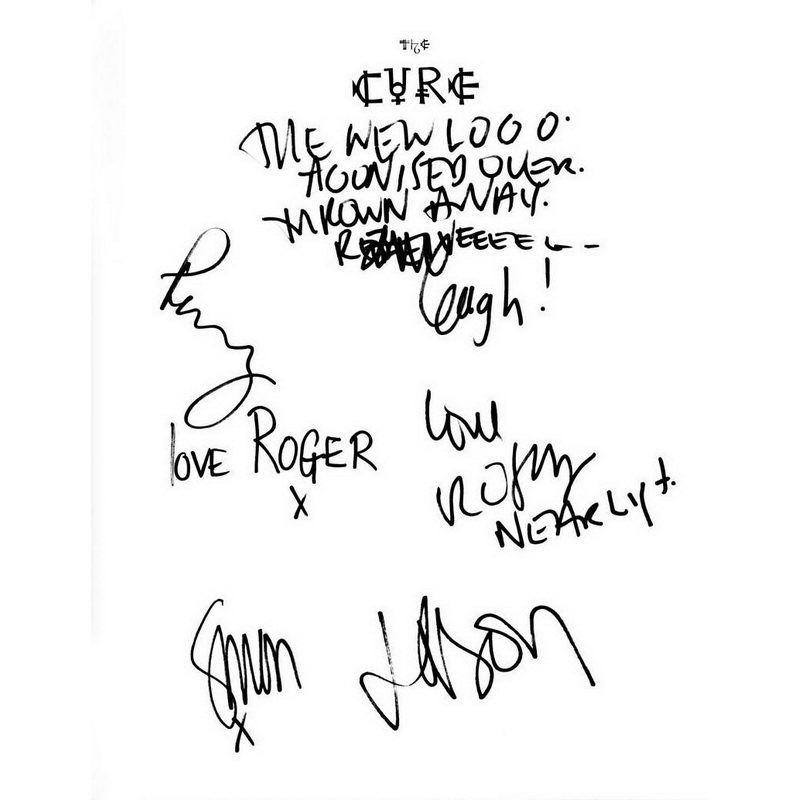 THE
CURE
THE NEW LOGO.
AGONISED OVER.
THROWN AWAY.
Laugh!
Perry
love ROGER
x
love
NEARLY +.
Simon
x
JASON